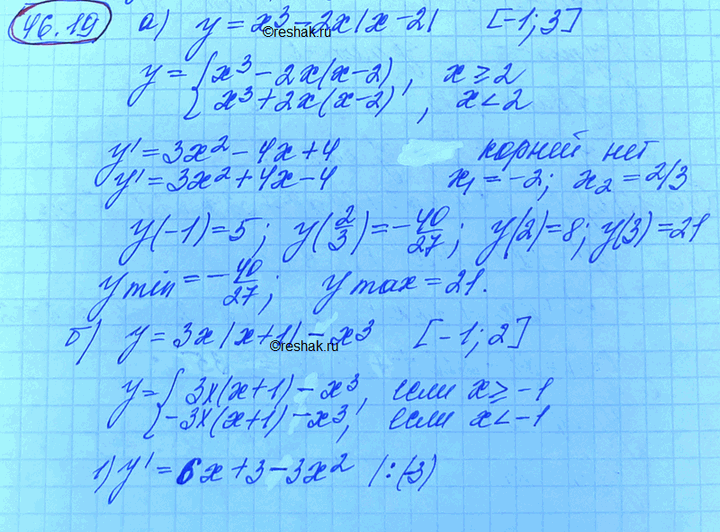 46.19 а) y = x³ - 2x|x - 2| [-1; 3]
©reshak.ru
y = { x³ - 2x(x - 2), x ≥ 2
x³ + 2x(x - 2), x < 2
y' = 3x² - 4x + 4 корней нет
y' = 3x² + 4x - 4 x₁ = -2; x₂ = 2/3
y(-1) = 5; y(2/3) = -40/27; y(2) = 8; y(3) = 21
y min = -40/27; y max = 21.
б) y = 3x|x + 1| - x³ [-1; 2]
©reshak.ru
y = { 3x(x + 1) - x³, если x ≥ -1
-3x(x + 1) - x³, если x < -1
1) y' = 6x + 3 - 3x² |:(-3)